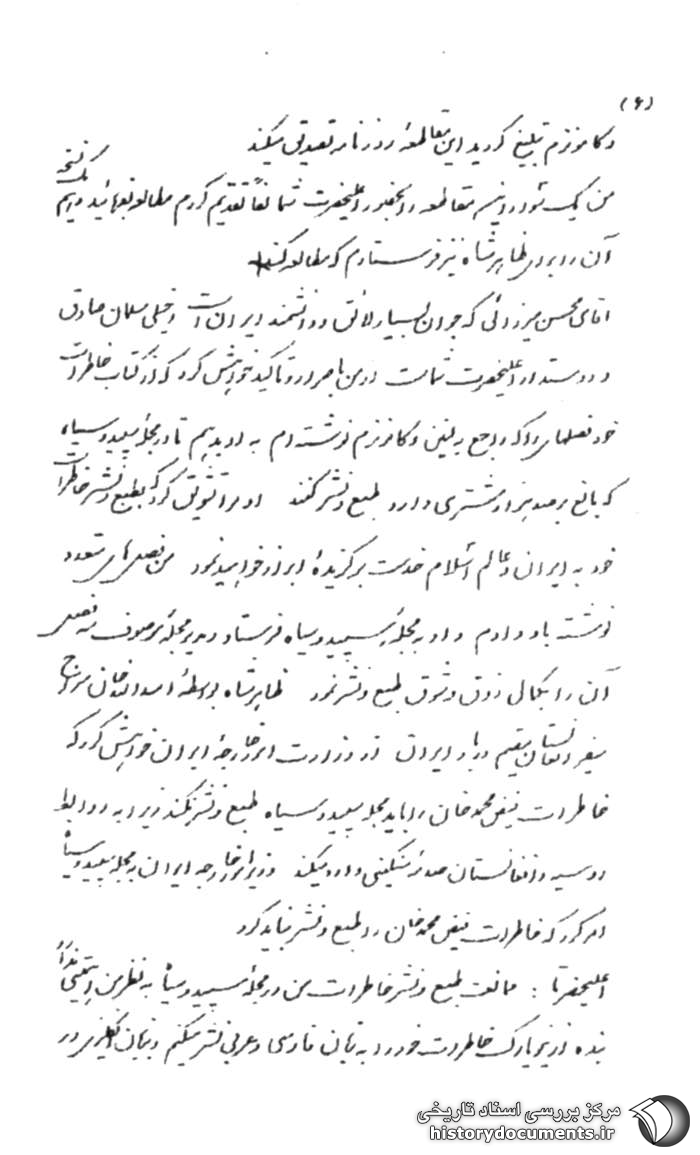 (۶)
و کامونزم تبلیغ کردید این مقاطعه روزنامه تصدیق میکند
من یک سواد این مقاطعه را بحضور اعلیحضرت شما تقدیم کردم مطالعه بفرمائید و یک نسخه
آن را برای ظاهرشاه نیز فرستادم که مطالعه کند
آقای محسن میرزائی که جوان بسیار لائق و دانشمند ایران است و خیلی مسلمان صادق
و دوستدار اعلیحضرت شماست از من باصرار و تأکید خواهش کرد که از کتاب خاطرات
خود فصلهای را که راجع به لینن و کامونزم نوشته ام به او بدهم تا در مجله سپید و سیاه
که بالغ بر صد هزار مشتری دارد طبع و نشر کنند او مرا تشویق کرد که بطبع و نشر خاطرات
خود به ایران و عالم اسلام خدمت برگزیدهٔ ابراز خواهید نمود من فصل های متعدد
نوشته باو دادم و او به مجلهٔ سپید و سیاه فرستاد و مدیر مجلهٔ موصوف سه فصل
آن را بکمال ذوق و شوق طبع و نشر نمود ظاهرشاه بواسطهٔ اسدالله خان سراج
سفیر افغانستان مقیم دربار ایران از وزارت امور خارجهٔ ایران خواهش کرد که
خاطرات فیض محمد خان را باید مجله سپید و سیاه طبع و نشر نکند زیرا به روابط
روسیه و افغانستان صدمهٔ سنگینی وارد میکند وزیر امور خارجه ایران به مجله سپید و سیاه
امر کرد که خاطرات فیض محمد خان را طبع و نشر نباید کرد
اعلیحضرتا : ممانعت طبع و نشر خاطرات من در مجلهٔ سپید و سیاه به نظر من اهمیتی ندارد
بنده در نیویارک خاطرات خود را به زبان فارسی و عربی نشر میکنم و بزبان انگلیزی در
مرکز بررسی اسناد تاریخی
historydocuments.ir